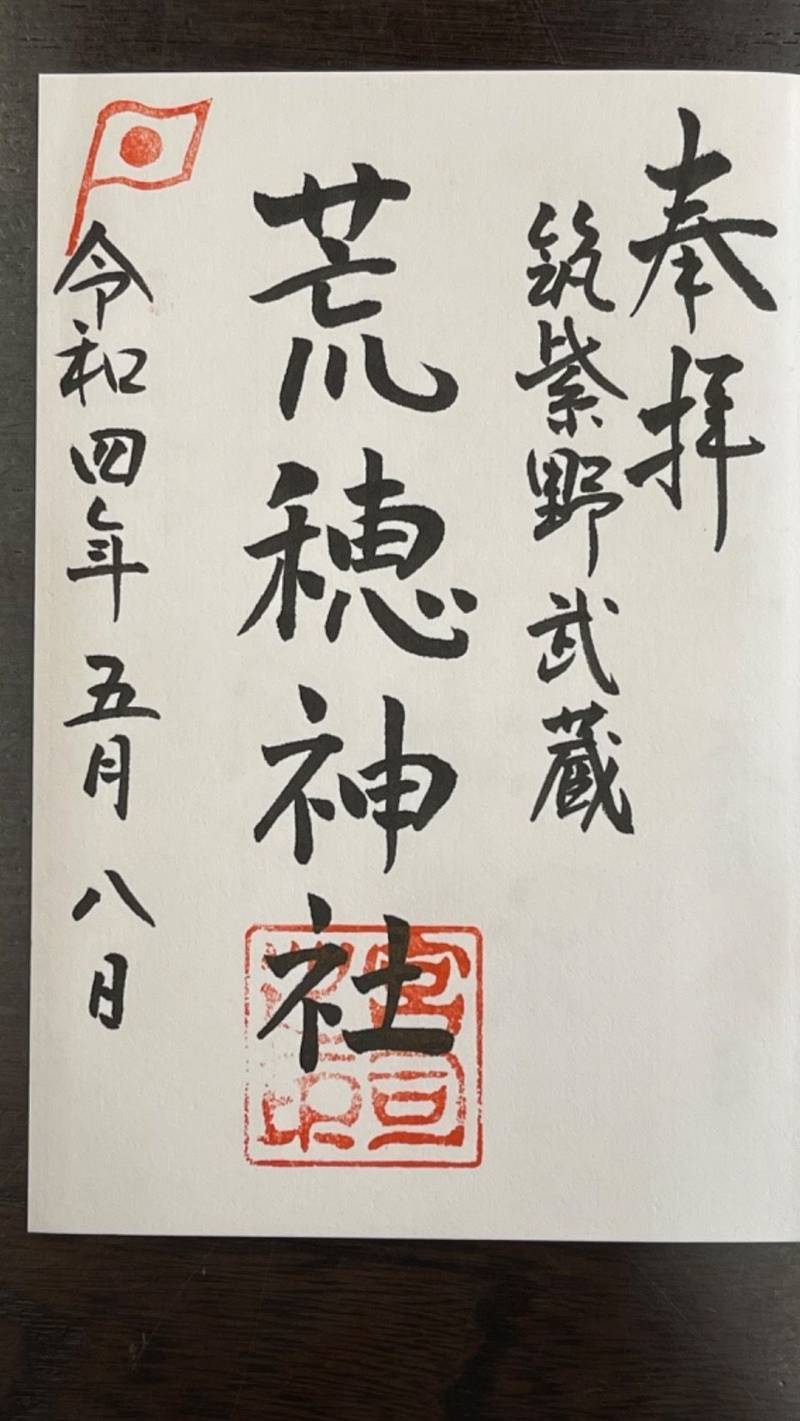 奉拝
筑紫野武蔵
荒穂神社
令和四年五月八日